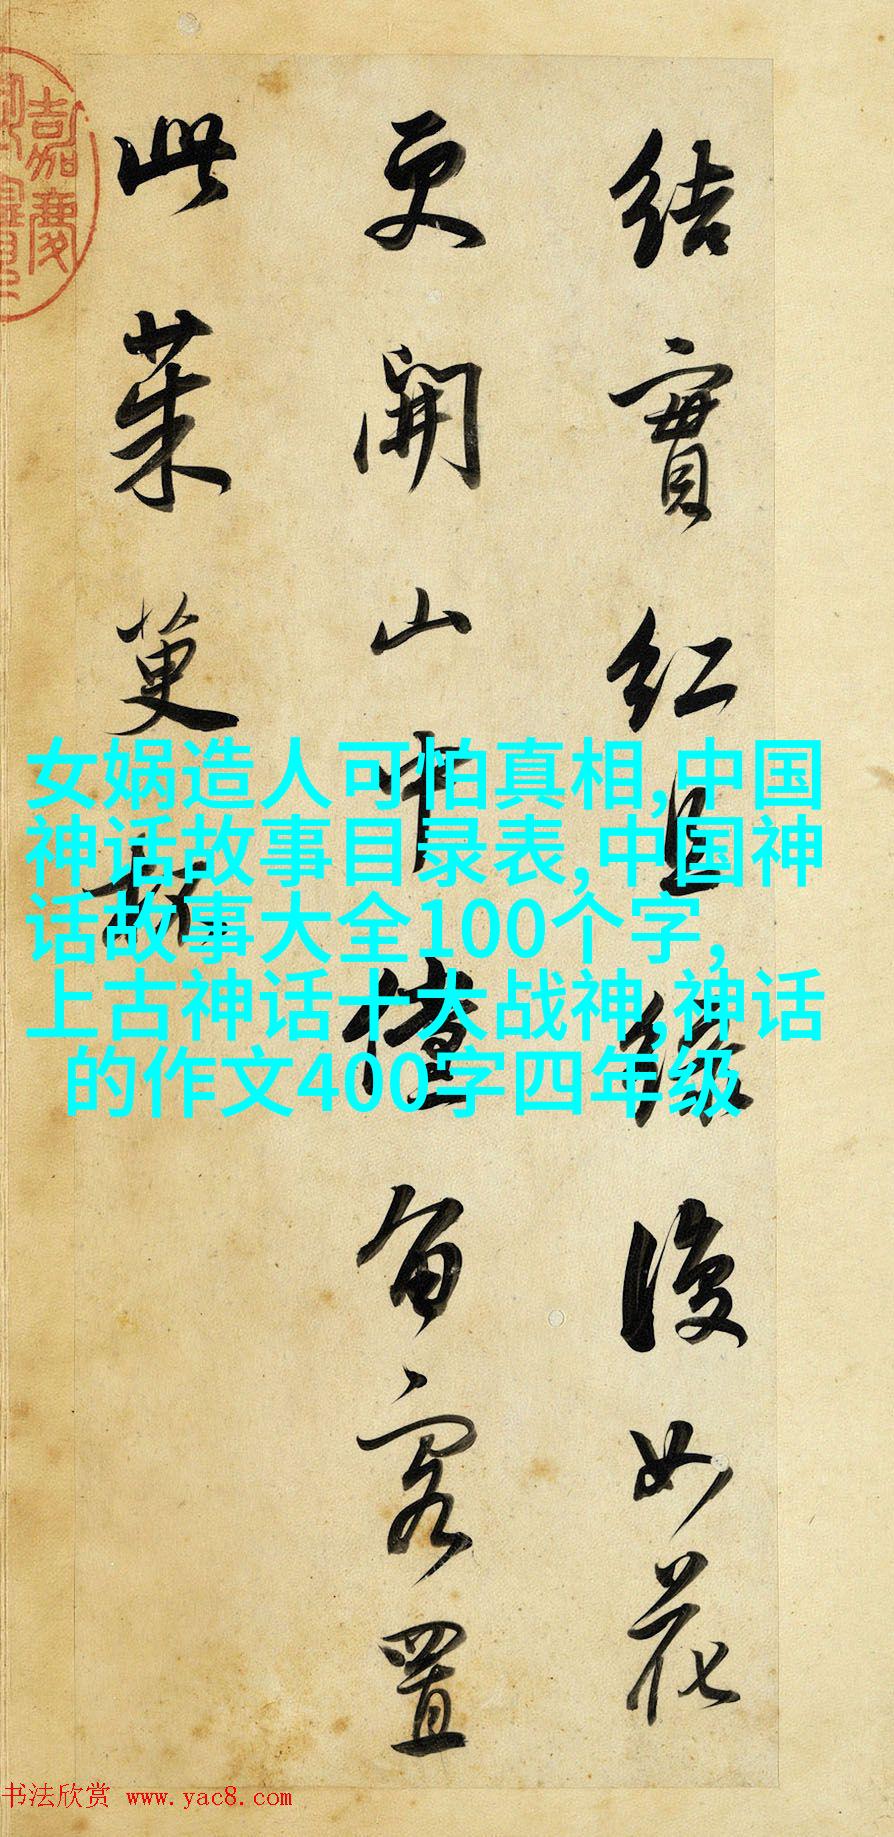 結實紅且綠復如花
更開山中儻留客置
此茱萸
嘉慶
女娲造人可怕真相,中国
神话故事目录表,中国神
话故事大全100个字,
上古神话十大战神,神话
的作文400字四年级
书法欣赏 www.yac8.com